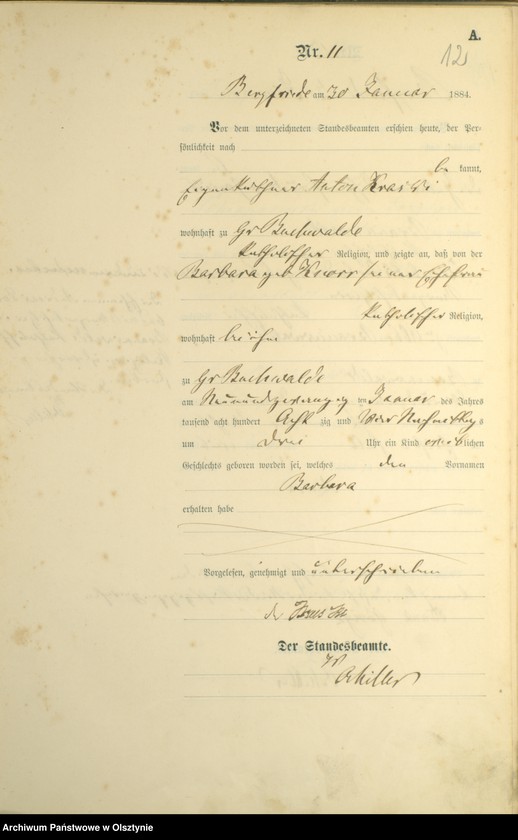 A.
12
Nr. 11
Bergfriede am 30 Januar 1884.
Vor dem unterzeichneten Standesbeamten erschien heute, der Per-
sönlichkeit nach
be kannt,
Eigenkäthner Anton
wohnhaft zu Gr Buchwalde
katholischer Religion, und zeigte an, daß von der
Barbara geb Knorr seiner Ehefrau
katholischer Religion,
wohnhaft bei ihm
zu Gr Buchwalde
am Neunundzwanzig ten Januar des Jahres
tausend acht hundert Acht zig und Vier Nachmittag s
um Drei Uhr ein Kind weib lichen
Geschlechts geboren worden sei, welches den Vornamen
Barbara
erhalten habe
Vorgelesen, genehmigt und
Der Standesbeamte.
Archiwum Państwowe w Olsztynie